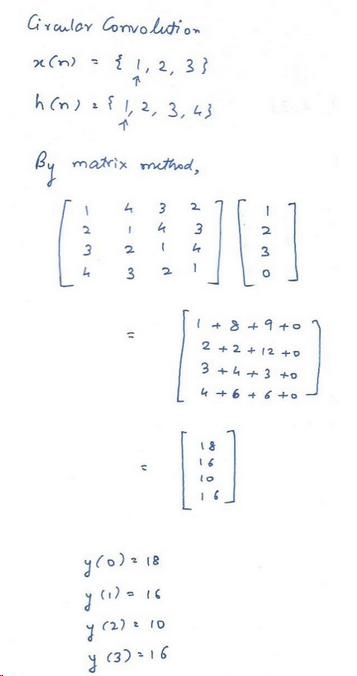 Circular Convolution
x(n) = { 1, 2, 3 }
↑
h(n) = { 1, 2, 3, 4 }
↑
By matrix method,
[ 1 4 3 2 ] [ 1 ]
[ 2 1 4 3 ] [ 2 ]
[ 3 2 1 4 ] [ 3 ]
[ 4 3 2 1 ] [ 0 ]
= [ 1 + 8 + 9 + 0 ]
[ 2 + 2 + 12 + 0 ]
[ 3 + 4 + 3 + 0 ]
[ 4 + 6 + 6 + 0 ]
= [ 18 ]
[ 16 ]
[ 10 ]
[ 16 ]
y(0) = 18
y(1) = 16
y(2) = 10
y(3) = 16